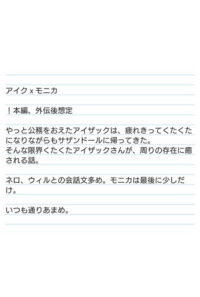 アイク x モニカ
！本編、外伝後想定
やっと公務をおえたアイザックは、疲れきってくたくた
になりながらもサザンドールに帰ってきた。
そんな限界くたくたアイザックさんが、周りの存在に癒
される話。
ネロ、ウィルとの会話文多め。モニカは最後に少しだ
け。
いつも通りあまめ。